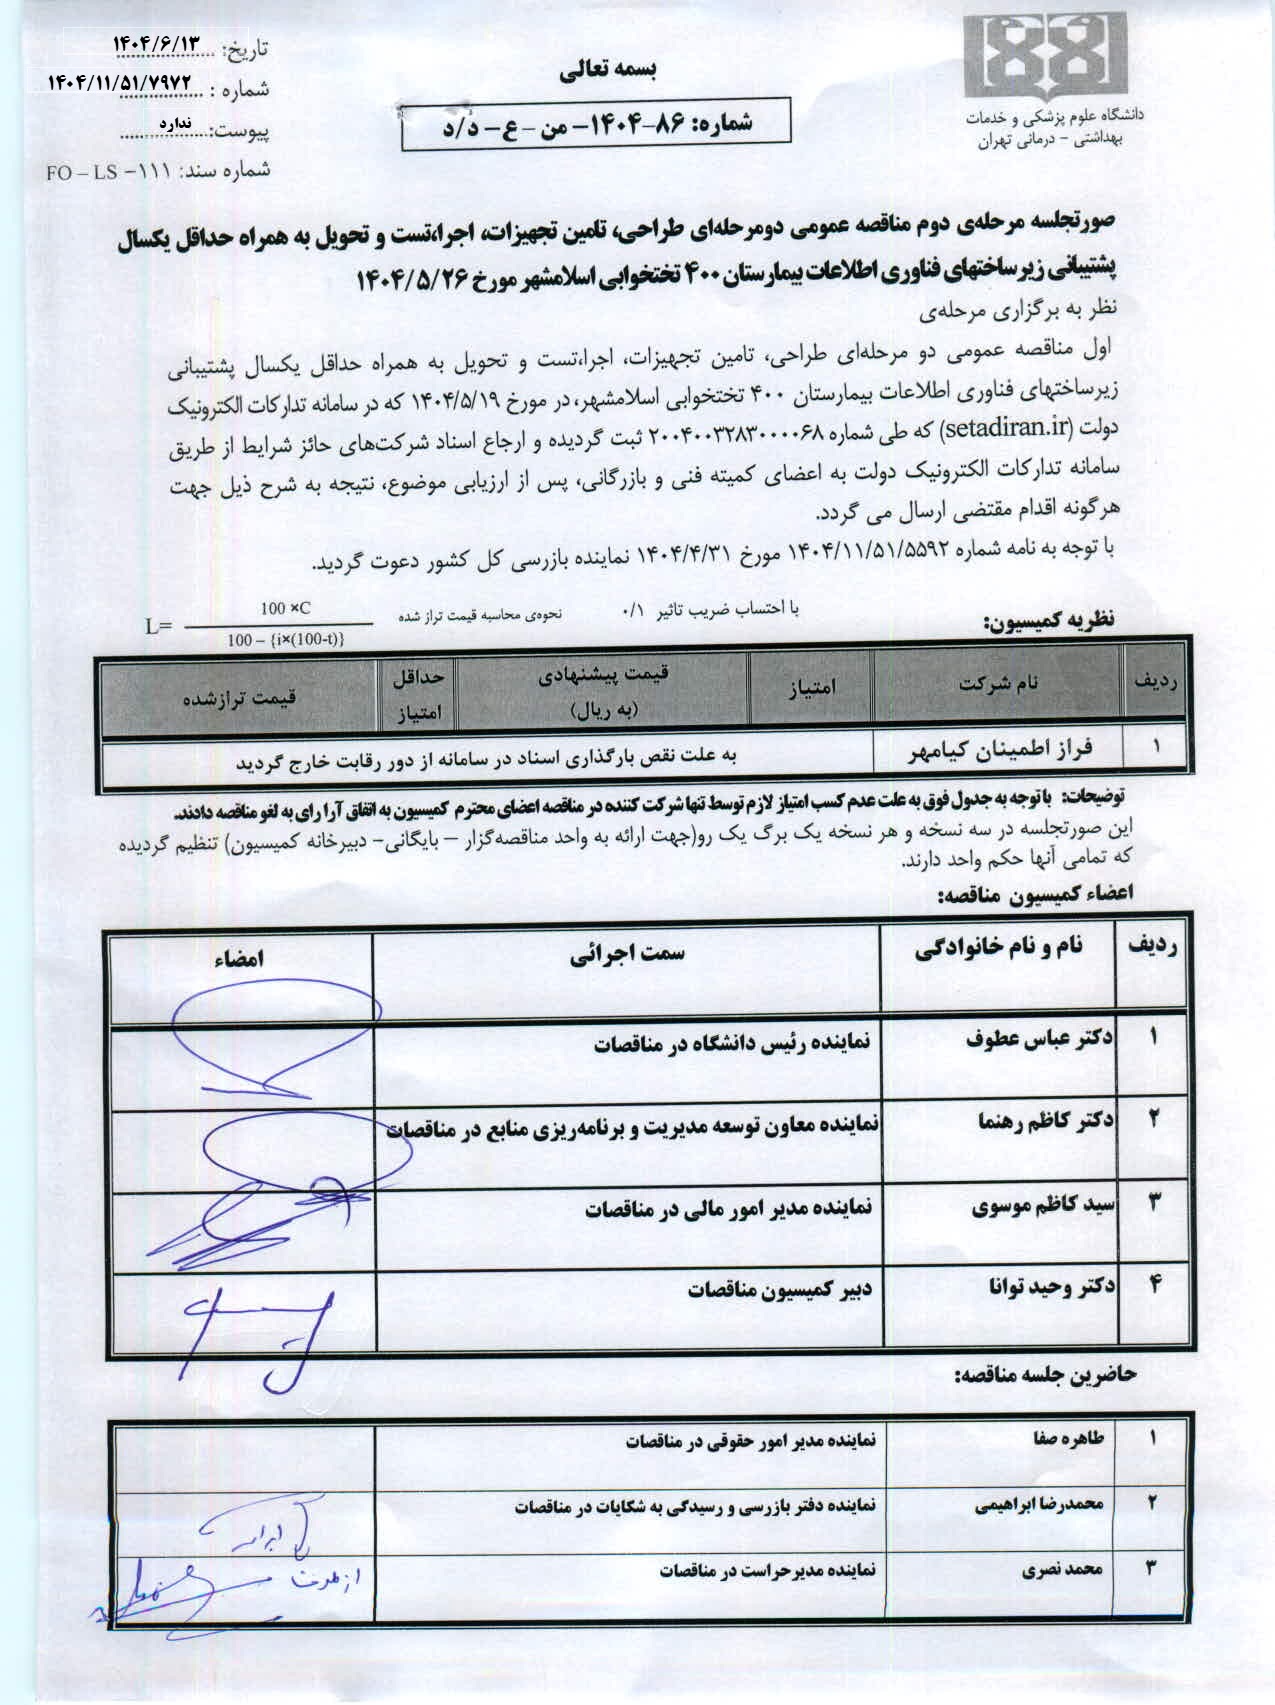 دانشگاه علوم پزشکی و خدمات
بهداشتی - درمانی تهران
بسمه تعالی
شماره: ۸۶-۱۴۰۴- من - ع- د/د
تاریخ: ۱۴۰۴/۶/۱۳
شماره : ۱۴۰۴/۱۱/۵۱/۷۹۷۲
پیوست: ندارد
شماره سند: FO – LS -۱۱۱
صورتجلسه مرحله‌ی دوم مناقصه عمومی دومرحله‌ای طراحی، تامین تجهیزات، اجرا،تست و تحویل به همراه حداقل یکسال
پشتیبانی زیرساختهای فناوری اطلاعات بیمارستان ۴۰۰ تختخوابی اسلامشهر مورخ ۱۴۰۴/۵/۲۶
نظر به برگزاری مرحله‌ی
اول مناقصه عمومی دو مرحله‌ای طراحی، تامین تجهیزات، اجرا،تست و تحویل به همراه حداقل یکسال پشتیبانی
زیرساختهای فناوری اطلاعات بیمارستان ۴۰۰ تختخوابی اسلامشهر، در مورخ ۱۴۰۴/۵/۱۹ که در سامانه تدارکات الکترونیک
دولت (setadiran.ir) که طی شماره ۲۰۰۴۰۰۳۲۸۳۰۰۰۰۶۸ ثبت گردیده و ارجاع اسناد شرکت‌های حائز شرایط از طریق
سامانه تدارکات الکترونیک دولت به اعضای کمیته فنی و بازرگانی، پس از ارزیابی موضوع، نتیجه به شرح ذیل جهت
هرگونه اقدام مقتضی ارسال می گردد.
با توجه به نامه شماره ۱۴۰۴/۱۱/۵۱/۵۵۹۲ مورخ ۱۴۰۴/۴/۳۱ نماینده بازرسی کل کشور دعوت گردید.
نظریه کمیسیون: با احتساب ضریب تاثیر ۰/۱ نحوه‌ی محاسبه قیمت تراز شده
L= 100 ×C
100 – {i×(100-t)}
ردیف نام شرکت امتیاز قیمت پیشنهادی (به ریال) حداقل امتیاز قیمت ترازشده
۱ فراز اطمینان کیامهر به علت نقص بارگذاری اسناد در سامانه از دور رقابت خارج گردید
توضیحات: با توجه به جدول فوق به علت عدم کسب امتیاز لازم توسط تنها شرکت کننده در مناقصه اعضای محترم کمیسیون به اتفاق آرا رای به لغو مناقصه دادند.
این صورتجلسه در سه نسخه و هر نسخه یک برگ یک رو(جهت ارائه به واحد مناقصه‌گزار – بایگانی- دبیرخانه کمیسیون) تنظیم گردیده
که تمامی آنها حکم واحد دارند.
اعضاء کمیسیون مناقصه:
ردیف نام و نام خانوادگی سمت اجرائی امضاء
۱ دکتر عباس عطوف نماینده رئیس دانشگاه در مناقصات
۲ دکتر کاظم رهنما نماینده معاون توسعه مدیریت و برنامه‌ریزی منابع در مناقصات
۳ سید کاظم موسوی نماینده مدیر امور مالی در مناقصات
۴ دکتر وحید توانا دبیر کمیسیون مناقصات
حاضرین جلسه مناقصه:
۱ طاهره صفا نماینده مدیر امور حقوقی در مناقصات
۲ محمدرضا ابراهیمی نماینده دفتر بازرسی و رسیدگی به شکایات در مناقصات
۳ محمد نصری نماینده مدیرحراست در مناقصات